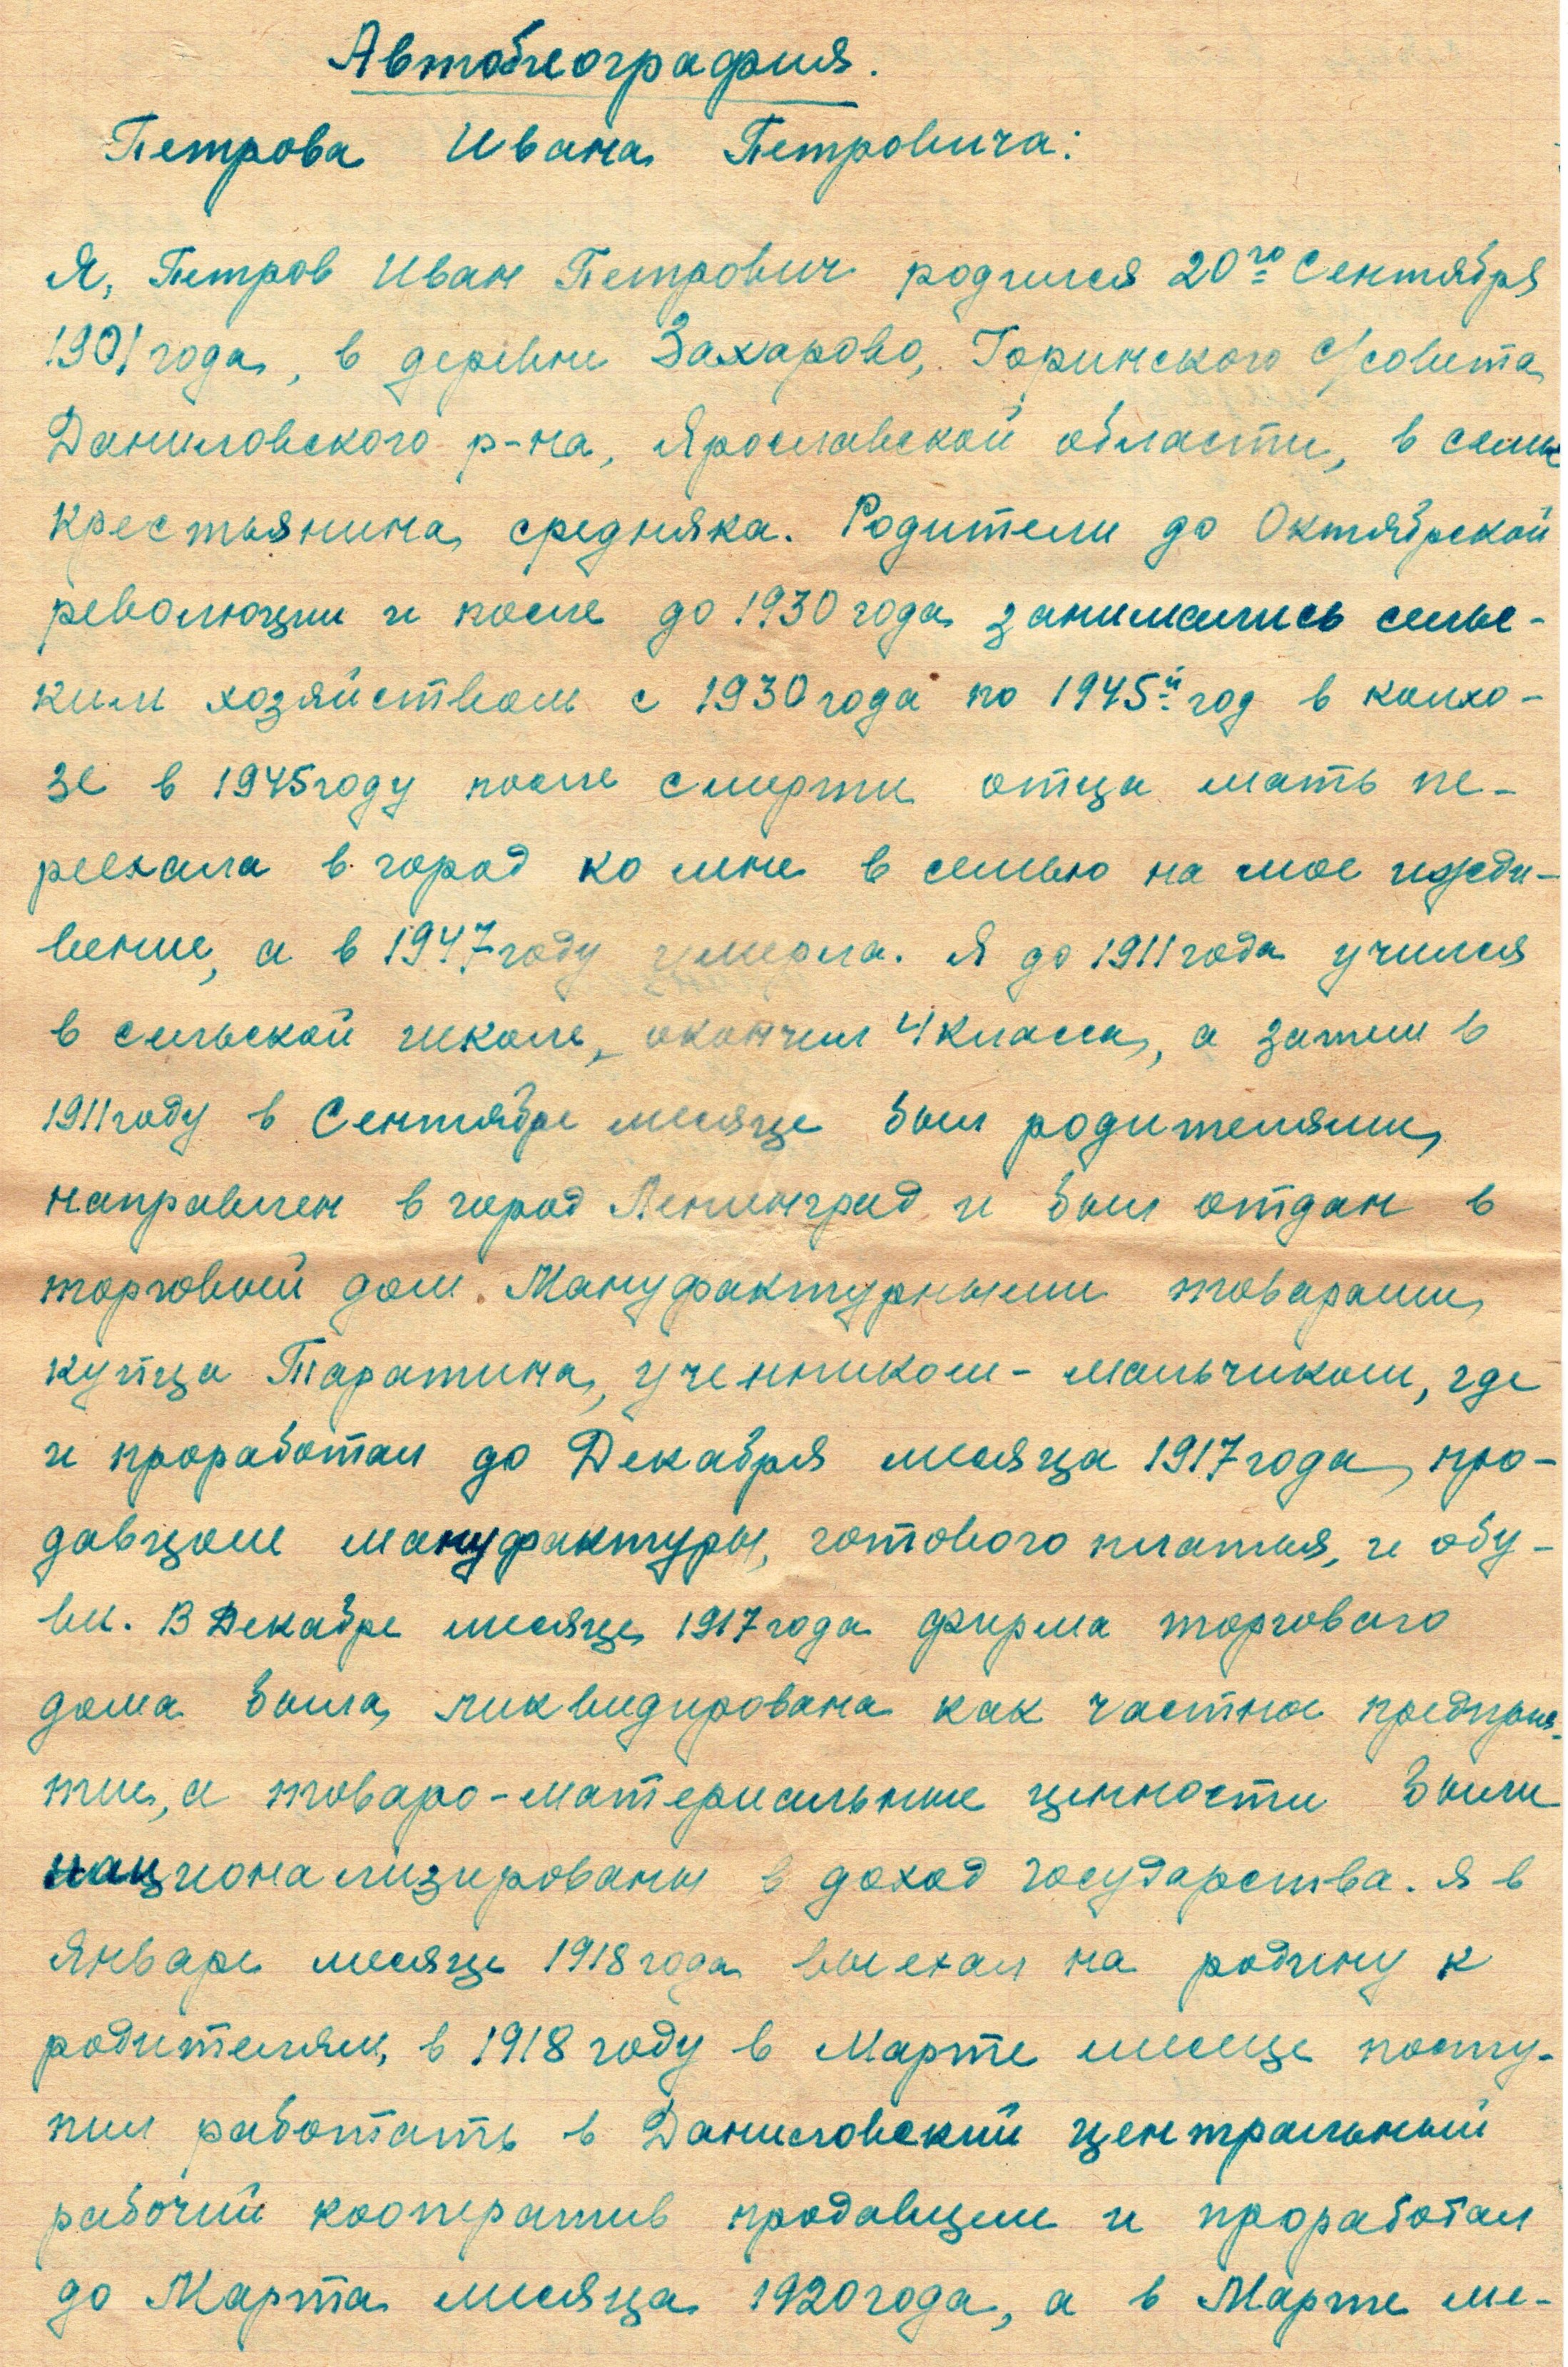 Автобиография.
Петрова Ивана Петровича:
Я, Петров Иван Петрович родился 20го Сентября
1901 года, в деревне Захарово, Горинского с/совета
Даниловского р-на, Ярославской области, в семье
крестьянина средняка. Родители до Октябрской
революции и после до 1930 года занимались сельс-
ким хозяйством с 1930 года по 1945й год в колхо-
зе в 1945 году после смерти отца мать пе-
реехала в город ко мне в семью на мое ижди-
вение, а в 1947 году умерла. Я до 1911 года учился
в сельской школе, окончил 4 класса, а затем в
1911 году в Сентябре месяце был родителями
направлен в город Ленинград и был отдан в
торговый дом Мануфактурными товарами
купца Таратина, учеником-мальчиком, где
и проработал до Декабря месяца 1917 года про-
давцом мануфактуры, готового платья, и обу-
ви. В Декабре месяце 1917 года фирма торгового
дома была ликвидирована как частное предприя-
тие, а товаро-материальные ценности были
национализированы в доход государства. Я в
Январе месяце 1918 года выехал на родину к
родителям, в 1918 году в Марте месяце посту-
пил работать в Даниловский центральный
рабочий кооператив продавцом и проработал
до Марта месяца 1920 года, а в Марте ме-